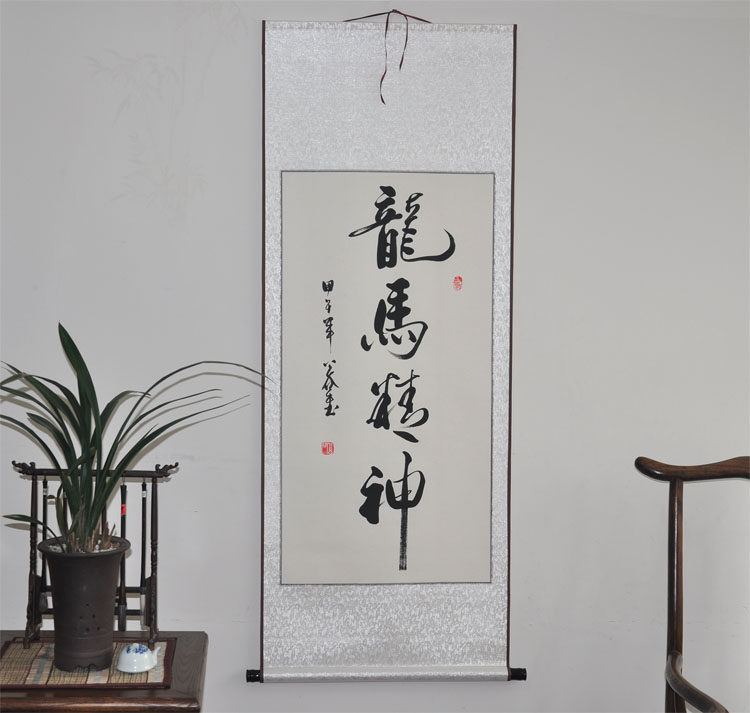 龍馬精神
甲午年